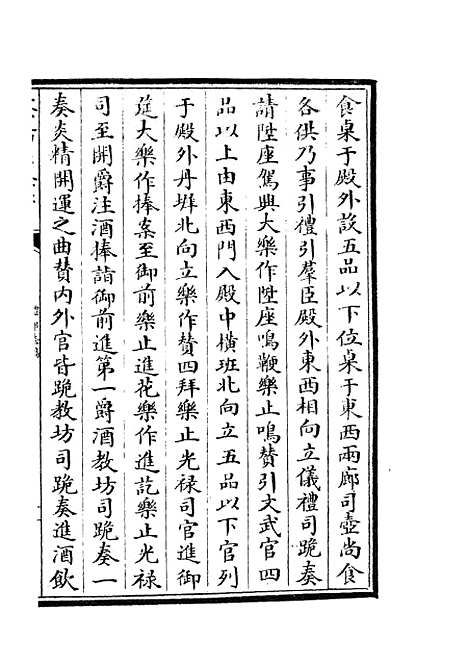 食桌于殿外設五品以下位桌于東西兩廊司壺尚食
各供乃事引禮引羣臣殿外東西相向立儀禮司跪奏
請陞座駕興大樂作陞座鳴鞭樂止鳴贊引文武官四
品以上由東西門入殿中橫班北向立五品以下官列
于殿外丹墀北向立樂作贊四拜樂止光禄司官進御
筵大樂作捧案至御前樂止進花樂作進訖樂止光禄
司至開爵注酒捧詣御前進第一爵酒教坊司跪奏一
奏炎精開運之曲贊内外官皆跪教坊司跪奏進酒飲